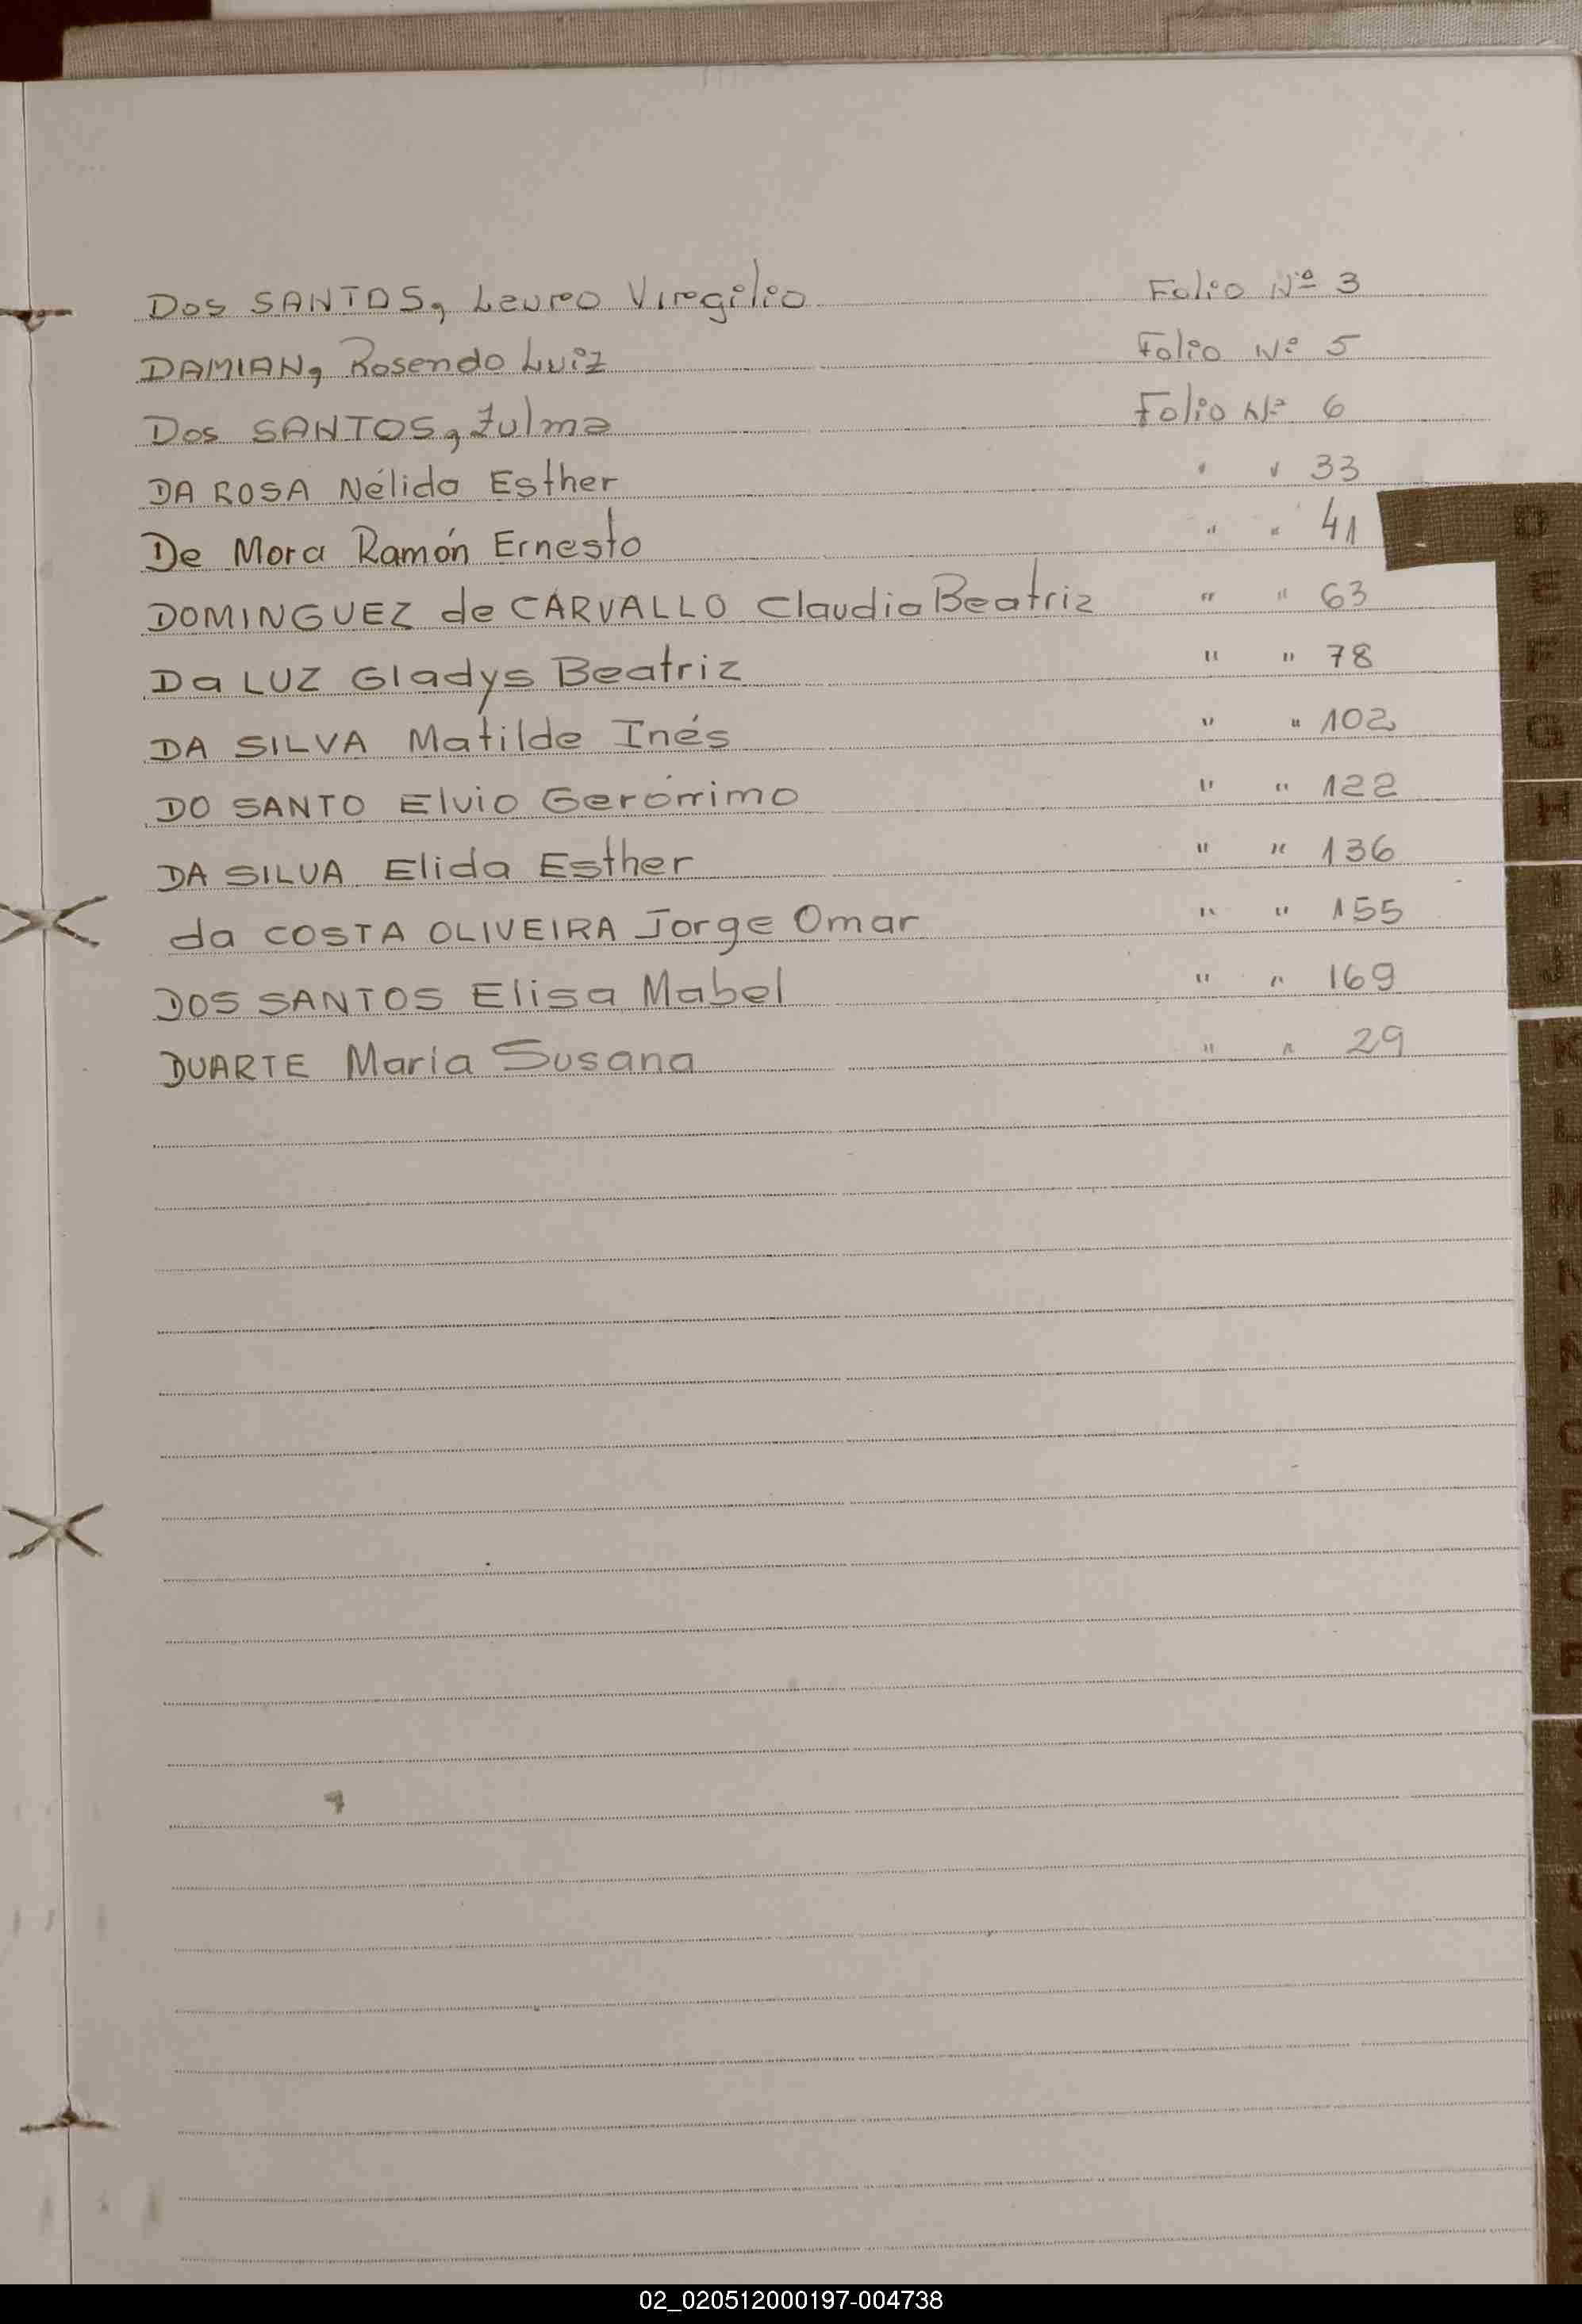 Dos SANTOS, Lauro Virgilio Folio Nº 3
DAMIAN, Rosendo Luiz Folio Nº 5
Dos SANTOS, Zulma Folio Nº 6
DA ROSA Nélida Esther " " 33
De Mora Ramón Ernesto " " 41
DOMINGUEZ de CARVALLO Claudia Beatriz " " 63
Da LUZ Gladys Beatriz " " 78
DA SILVA Matilde Inés " " 102
DO SANTO Elvio Gerónimo " " 122
DA SILVA Elida Esther " " 136
da COSTA OLIVEIRA Jorge Omar " " 155
DOS SANTOS Elisa Mabel " " 169
DUARTE Maria Susana " " 29
D
E
F
G
H
I
J
K
L
M
N
02_020512000197-004738